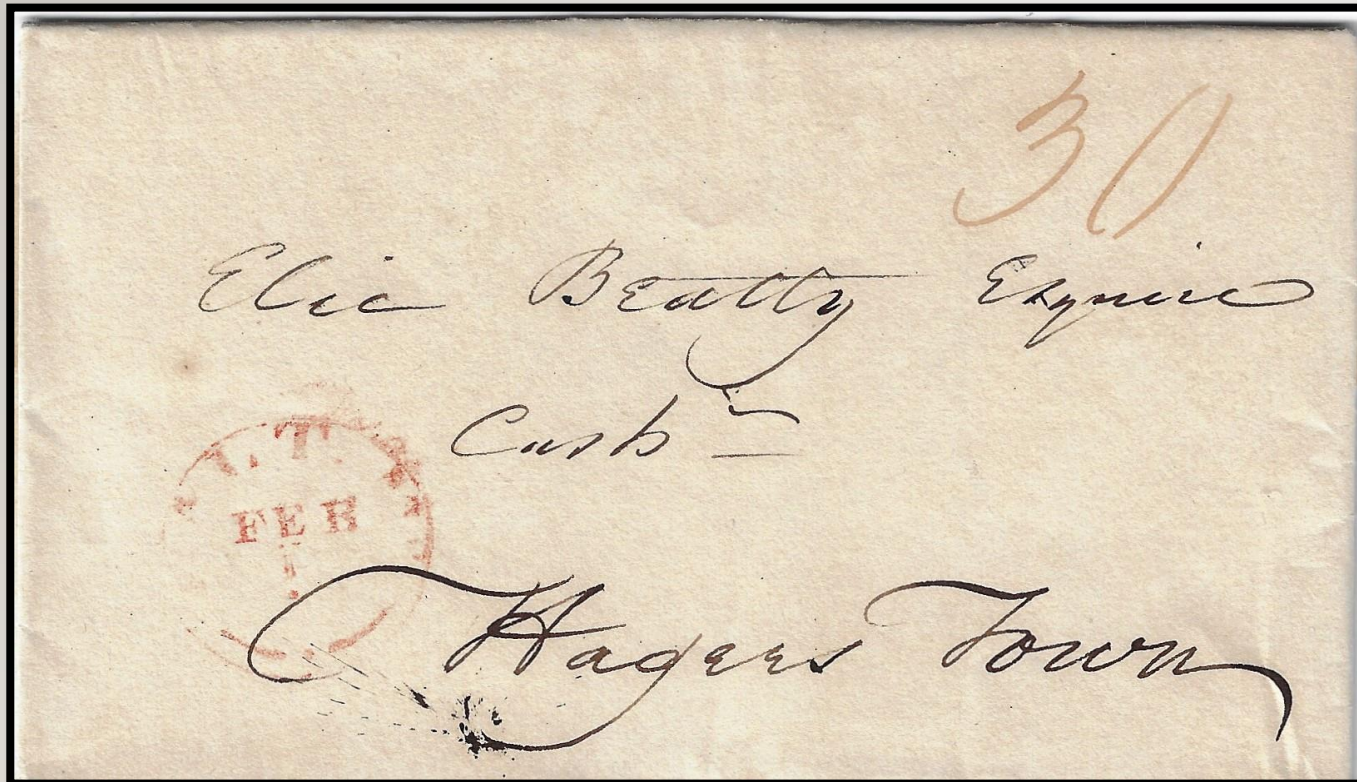 30
Elie Beatty Esquire
Cashr
FEB
1
Hagers Town